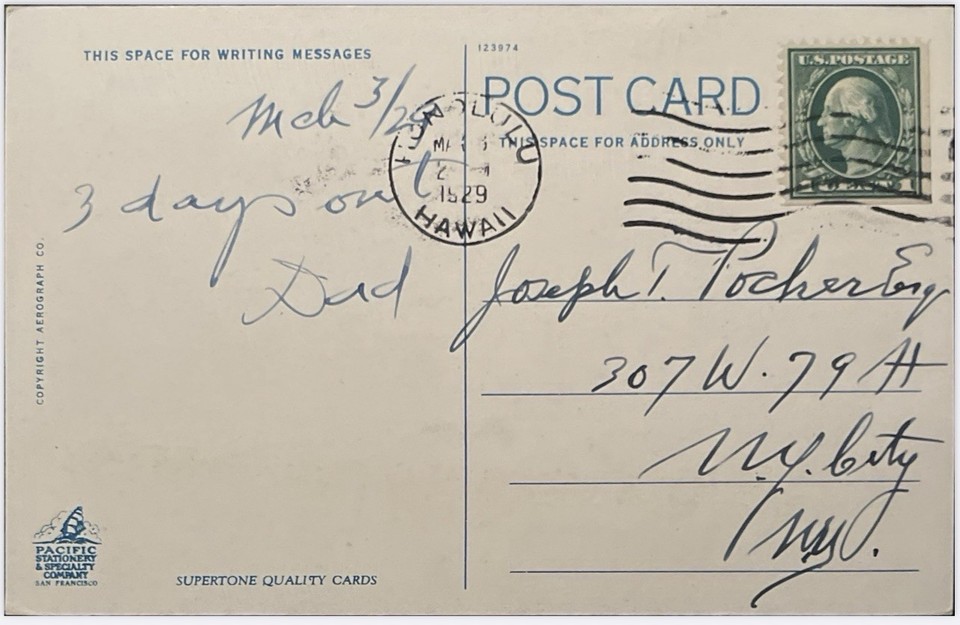 THIS SPACE FOR WRITING MESSAGES
Mch 3/29
3 days out
Dad
COPYRIGHT AEROGRAPH CO.
PACIFIC
STATIONERY
& SPECIALTY
COMPANY
SAN FRANCISCO
SUPERTONE QUALITY CARDS
123974
POST CARD
THIS SPACE FOR ADDRESS ONLY
HONOLULU
1929
HAWAII
U.S. POSTAGE
1
Joseph T. Pocher Esq
307 W. 79 St
N.Y. City
N.Y.